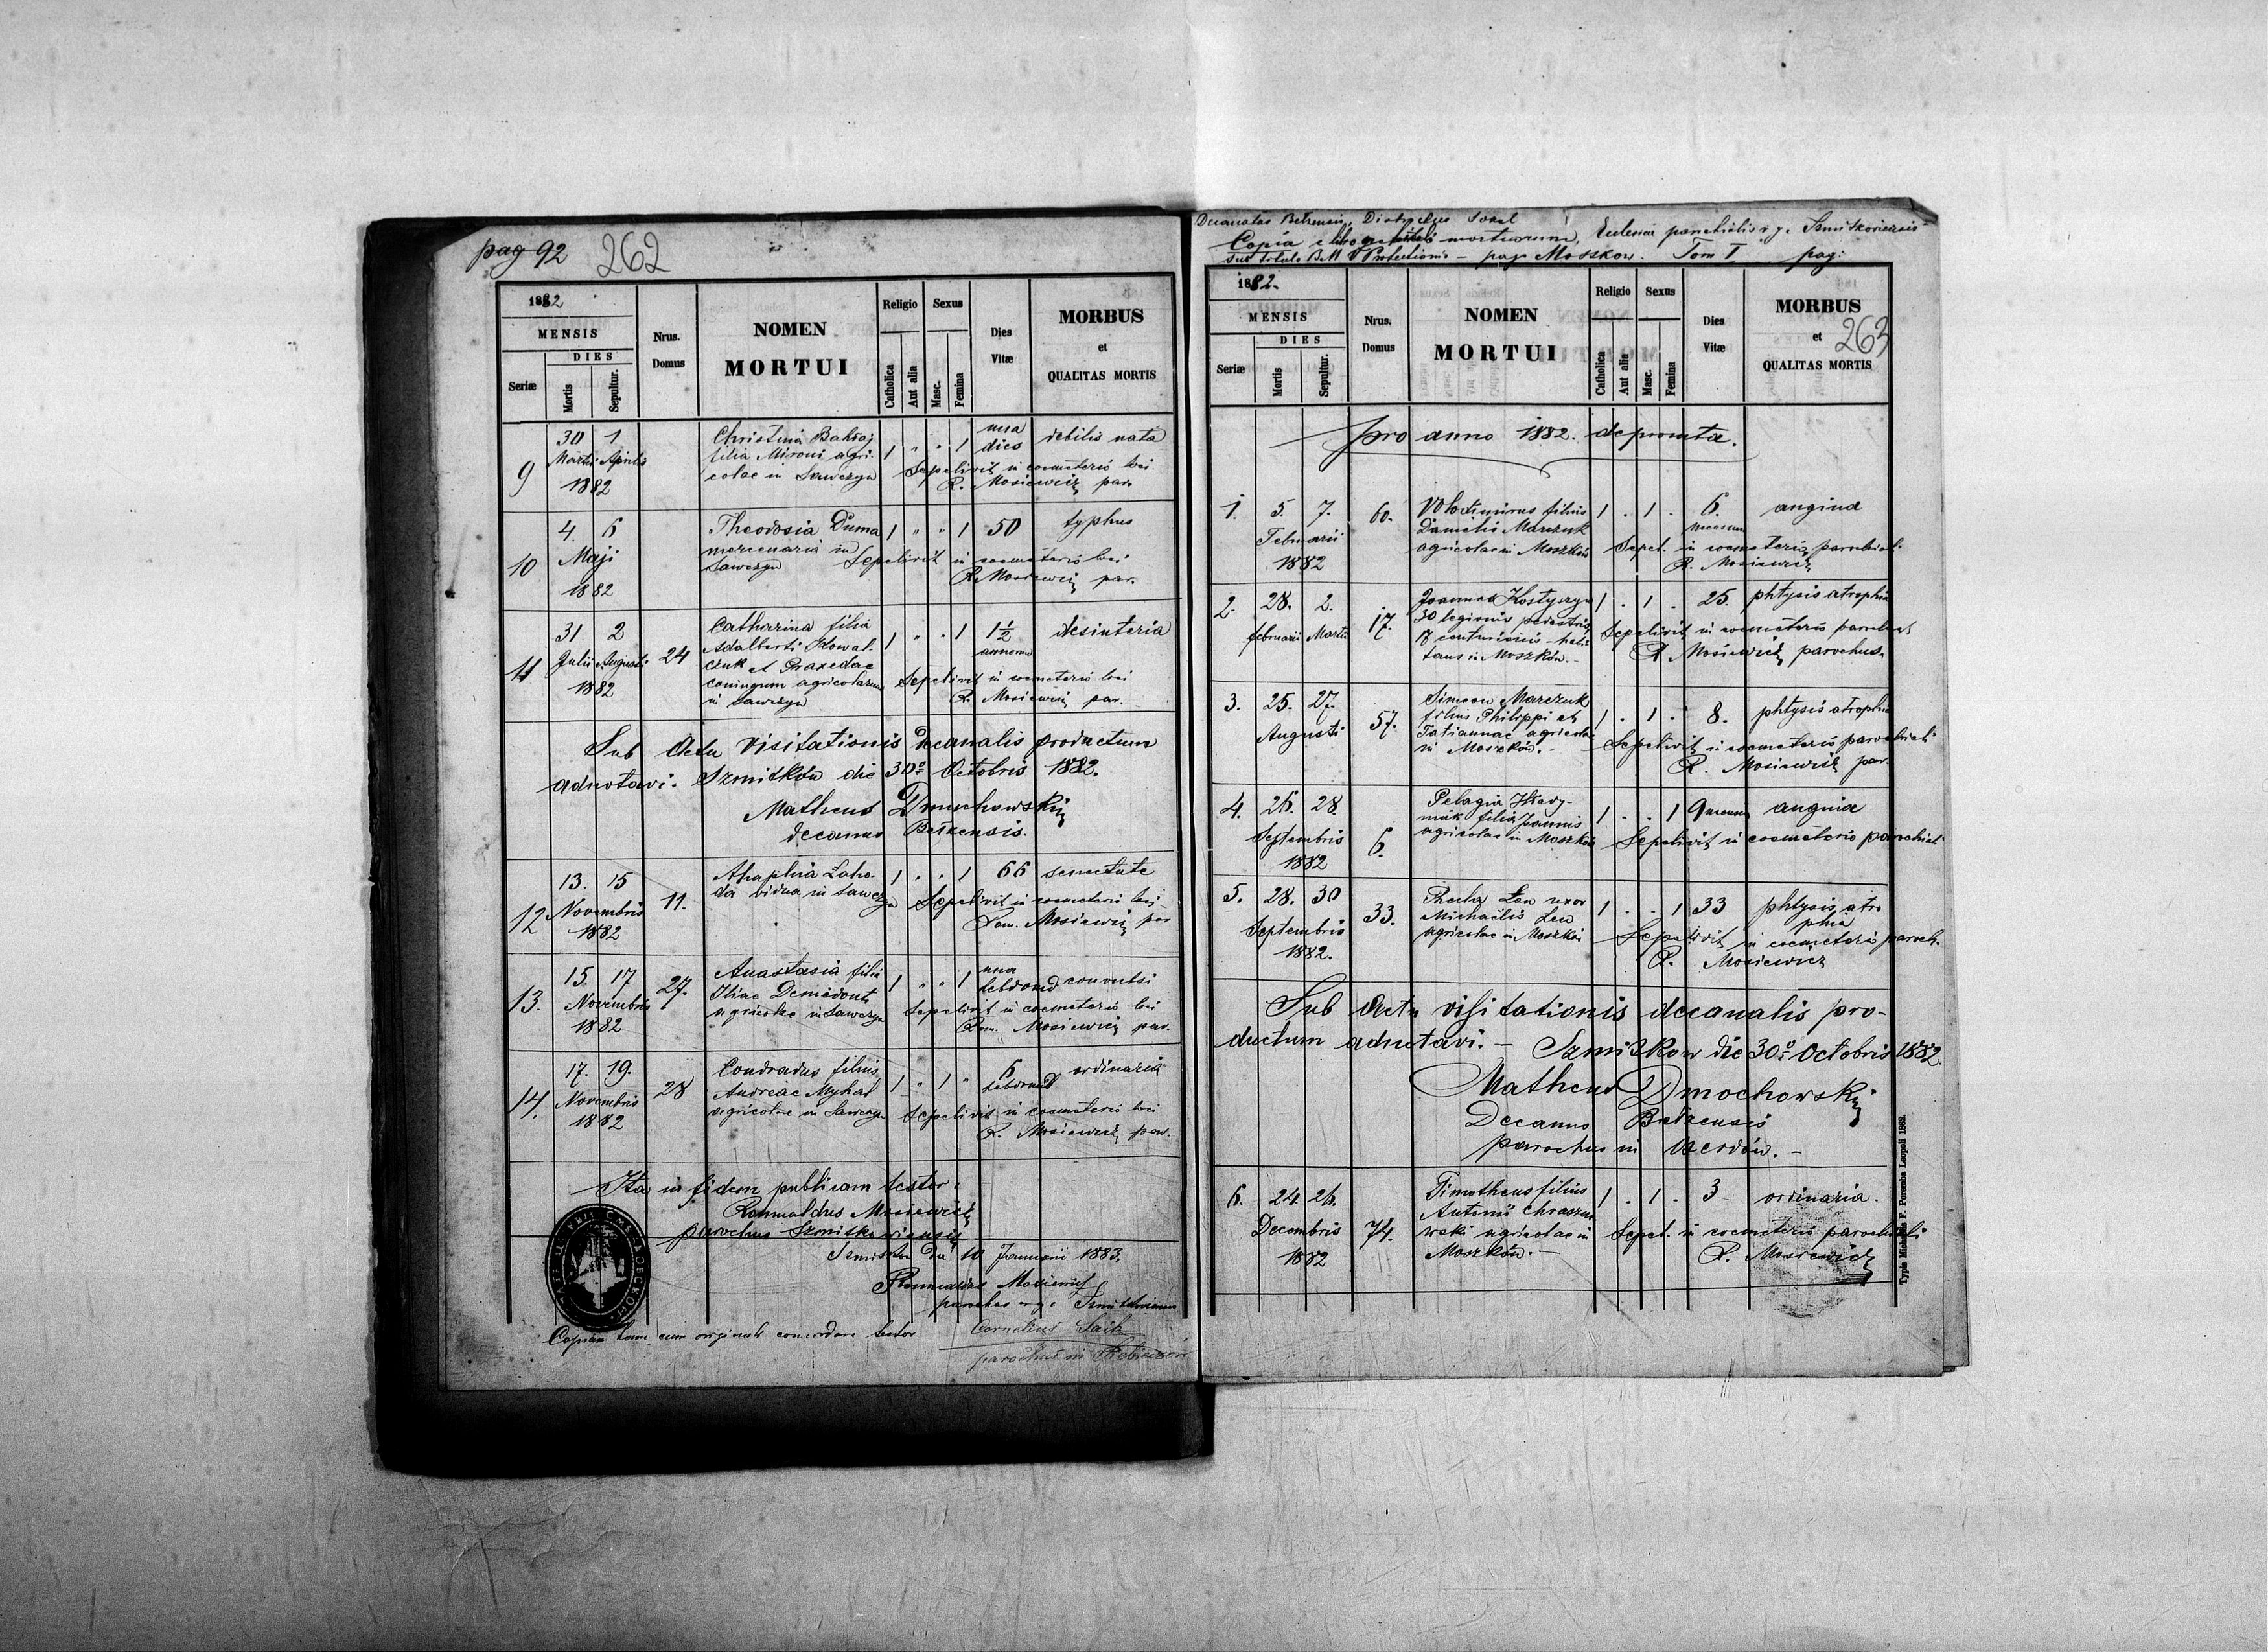 pag 92 262
1882
MENSIS
DIES
Seriæ
Mortis
Sepultur.
Nrus.
Domus
NOMEN
MORTUI
Religio
Catholica
Aut alia
Sexus
Masc.
Femina
Dies
Vitæ
MORBUS
et
QUALITAS MORTIS
9 30 1 Martii Aprilis 1882
Christina
filia Mironi agri-
colae in Sawczyn
1 " " 1 una dies debilis nata
Sepelivit in coemeterio loci
R. Mosiewicz par.
10 4. 6 Maji 1882
Theodosia Duma
mercenaria in
Sawczyn
1 " " 1 50 typhus
Sepelivit in coemeterio loci
R. Mosiewicz par.
11 31 2 Julii Augusti 1882 24
Catharina filia
Adalberti Kowal-
czuk et Praxedae
coniugum agricolarum
in Sawczyn
1 " " 1 1 1/2 annorum desinteria
Sepelivit in coemeterio loci
R. Mosiewicz par.
Sub Actu visitationis decanalis productum
adnotavi. Szmitków die 30º Octobris 1882.
Matheus Dmochowskij
decanus Bełzensis.
12 13. 15 Novembris 1882 11.
Ahaphia Laho-
da vidua in Sawczyn
1 " " 1 66 senectute
Sepelivit in coemeterio loci
Rom. Mosiewicz par
13. 15. 17 Novembris 1882 27.
Anastasia filia
Iliae
agricolae in Sawczyn
1 " " 1 una hebdomad convulsi
Sepelivit in coemeterio loci
Rom. Mosiewicz par.
14. 17. 19. Novembris 1882 28
Condradus filius
Andreae Myhal
agricolae in Sawczyn
1 " 1 " 6 hebdomad ordinaria
Sepelivit in coemeterio loci
R. Mosiewicz par.
Ita in fidem publicam testor.
Romualdus Mosiewicz
parochus Szmitkoviensis
Szmitków Die 10 Januarii 1883.
Romualdus Mosiewicz
parochus
Copiam hanc cum originali concordare testor
Cornelius
parochus in
Decanatus Belzensis, Districtus Sokal
Copia mortuorum, Ecclesiae parochialis r. g. Szmitkoviensis
sub titulo B. M. V Protectionis - pago Moszkow. Tom I pag:
1882.
MENSIS
DIES
Seriæ
Mortis
Sepultur.
Nrus.
Domus
NOMEN
MORTUI
Religio
Catholica
Aut alia
Sexus
Masc.
Femina
Dies
Vitæ
MORBUS
et 263
QUALITAS MORTIS
pro anno 1882. depromta.
1. 5. 7. Februarii 1882 60.
Wlodimirus filius
Danielis Marczuk
agricolae in Moszków
1 . 1 . 6. mensium angina
Sepel. in coemeterio parochiali
R. Mosiewicz
2. 28. 2. februarii Martii 17.
Joannes Kostyszyn
30 legionis pedestris
17 centurionis - habi-
tans in Moszków. -
1 . 1 . 25. phtysis atrophia
Sepelivit in coemeterio parochiali
R. Mosiewicz parochus
3. 25. 27. Augusti 57.
Simeon Marczuk
filius Philippi et
Tatiannae agricolae
in Moszków. -
1 . 1 . 8. phtysis atrophia
Sepelivit in coemeterio parochiali
R. Mosiewicz par.
4. 26. 28. Septembris 1882 6.
Pelagia
filia Joannis
agricolae in Moszków
1 . . 1 9 mensium angina
Sepelivit in coemeterio parochiali
5. 28. 30 Septembris 1882. 33.
Len uxor
Michaëlis Len
agricolae in Moszków
1 . . 1 33 phtysis atro
phia
Sepelivit in coemeterio paroch.
R. Mosiewicz
Sub Actu visitationis decanalis pro-
ductum adnotavi. - Szmitkow die 30º Octobris 1882.
Matheus Dmochowskij
Decanus Bełzensis
parochus in
6. 24. 26. Decembris 1882 74.
Timotheus filius
Antonii
agricolae in
Moszków. -
1 . 1 . 3 ordinaria.
Sepel. in coemeterio parochiali
R. Mosiewicz
Typis Michaelis F. Poremba Leopoli 1862.